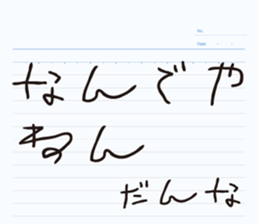 No.
Date
なんでや
ねん
だんな